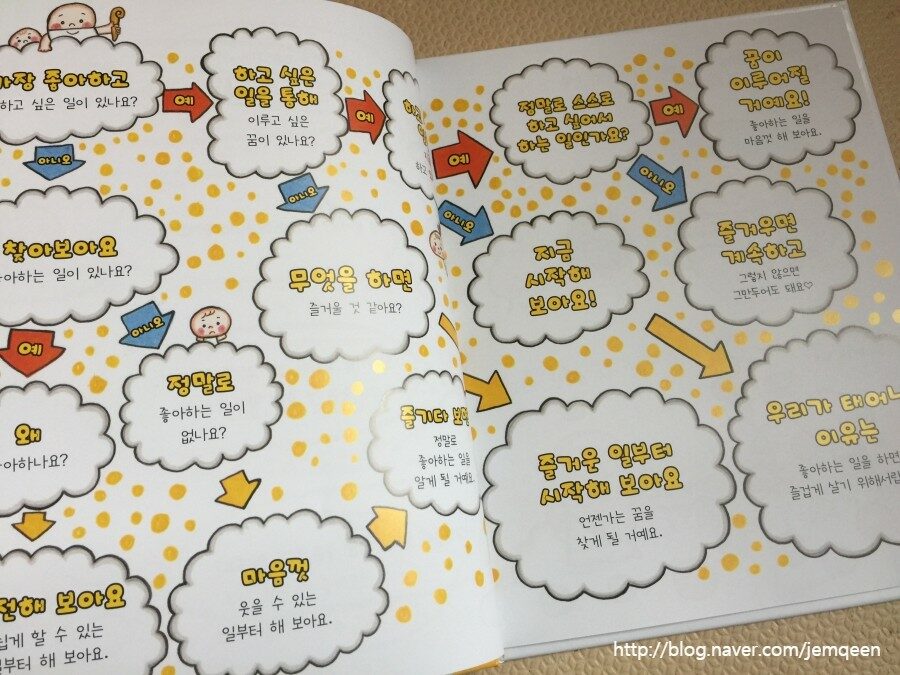 좋아하고
하고 싶은 일이 있나요?
예
하고 싶은
일을 통해
이루고 싶은
꿈이 있나요?
예
예
정말로 스스로
하고 싶어서
하는 일인가요?
예
꿈이
이루어질
거예요!
좋아하는 일을
마음껏 해 보아요.
아니오
아니오
아니오
아니오
찾아보아요
일이 있나요?
무엇을 하면
즐거울 것 같아요?
지금
시작해
보아요!
즐거우면
계속하고
그렇지 않으면
그만두어도 돼요♡
예
아니오
왜
정말로
좋아하는 일이
없나요?
즐기다
정말로
좋아하는 일을
알게 될 거예요.
즐거운 일부터
시작해 보아요
언젠가는 꿈을
찾게 될 거예요.
우리가
이유는
좋아하는 일을 하면
즐겁게 살기
보아요
할 수 있는
해 보아요.
마음껏
웃을 수 있는
일부터 해 보아요.
http://blog.naver.com/jemqeen